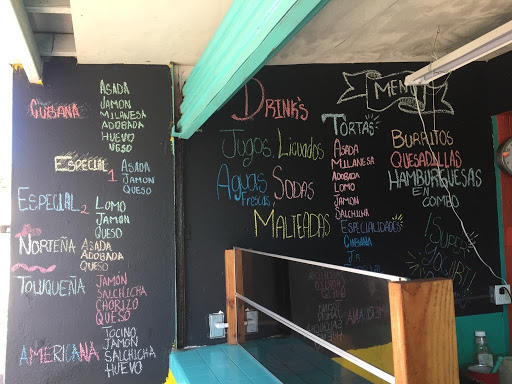 CUBANA
ASADA
JAMON
MILANESA
ADOBADA
HUEVO
QESO
ESPECIAL 1
ASADA
JAMON
QUESO
ESPECIAL 2
LOMO
JAMON
QUESO
NORTEÑA
ASADA
ADOBADA
QUESO
TOLUQUEÑA
JAMÓN
SALCHICHA
CHORIZO
QUESO
AMERICANA
TOCINO
JAMON
SALCHICHA
HUEVO
DRINK'S
JUGOS, LICUADOS
AGUAS FRESCAS, SODAS
MALTEADAS
TORTAS
ASADA
MILANESA
ADOBADA
LOMO
JAMON
SALCHICHA
ESPECIALIDADES
CUBANA
MENÚ
BURRITOS
QUESADALLAS
HAMBURGUESAS
EN
COMBO
¡SUPER
YOGURT!